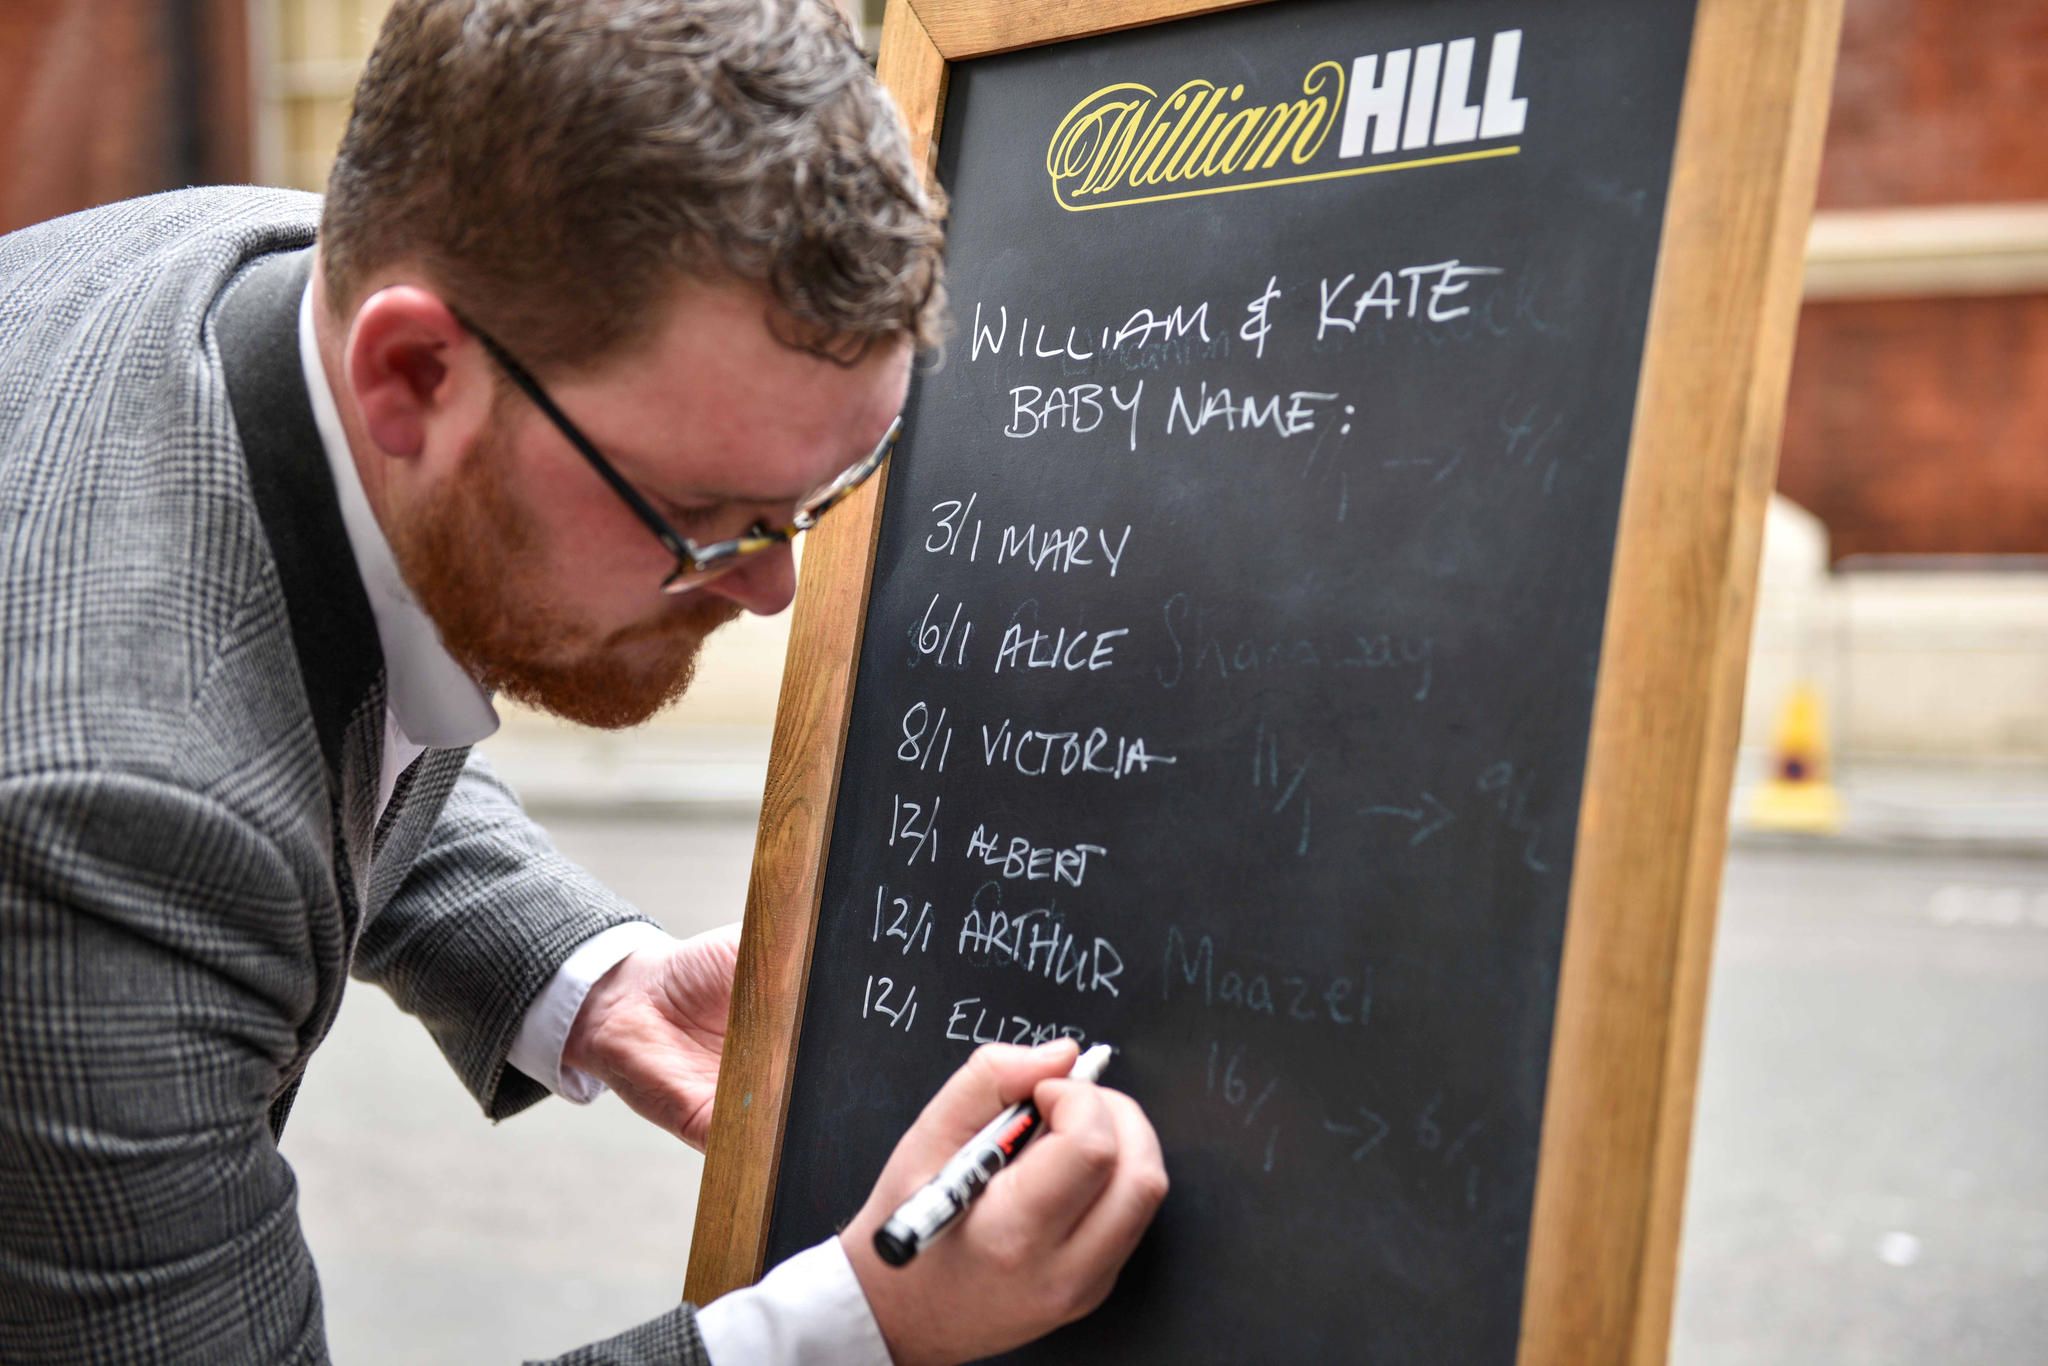 William HILL
WILLIAM & KATE
BABY NAME:
3/1 MARY
6/1 ALICE Sharaway
8/1 VICTORIA 11/1 →
12/1 ALBERT
12/1 ARTHUR Maazel
12/1 ELIZAB
16/1 → 6/1